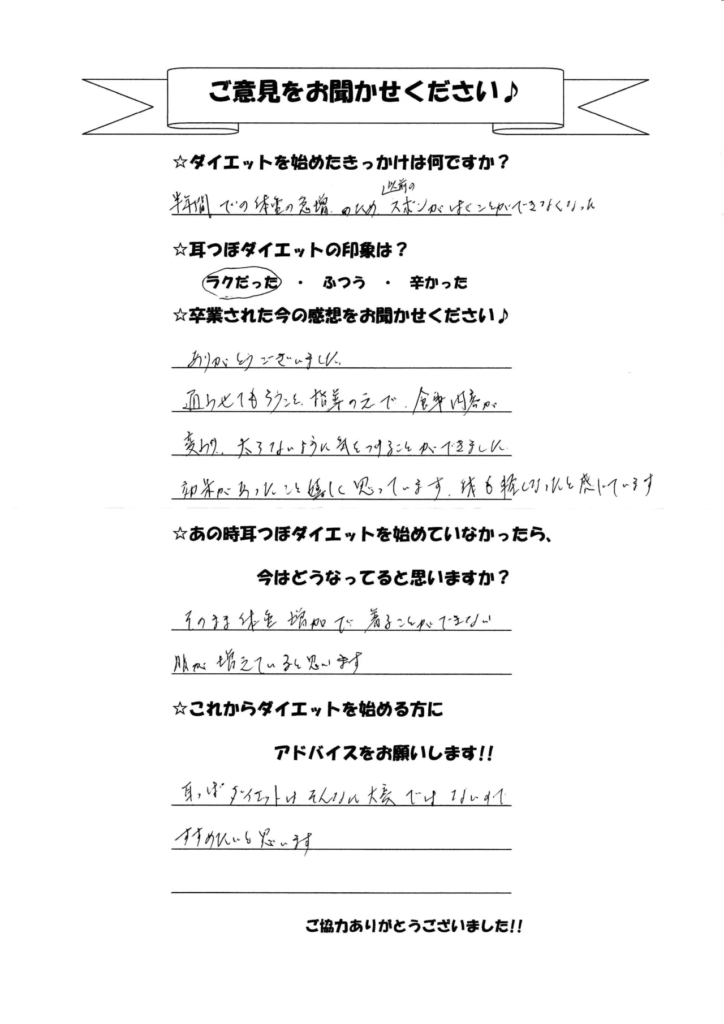 ご意見をお聞かせください♪
☆ダイエットを始めたきっかけは何ですか？
以前の
半年間での体重の急増のため、ズボンがはくことができなくなった
☆耳つぼダイエットの印象は？
ラクだった ・ ふつう ・ 辛かった
☆卒業された今の感想をお聞かせください♪
ありがとうございました。
通らせてもらうこと、指導の元で、食事内容が
変わり、太らないように気をつけることができました。
効果があったこと嬉しく思っています。体も軽くなったと感じています
☆あの時耳つぼダイエットを始めていなかったら、
今はどうなってると思いますか？
そのまま体重増加で着ることができない
服が増えていると思います
☆これからダイエットを始める方に
アドバイスをお願いします!!
耳つぼダイエットはそんなに大変ではないので
すすめたいと思います
ご協力ありがとうございました!!